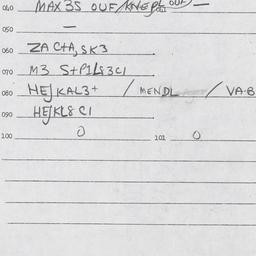 040 MAX 3S OUF/KNEPL OUF —
050 —
060 ZACTA, SK3
070 M3 S+P1LS3C1
080 HE/KAL3+ / MENDL / VA-B
090 HE/KL8 C1
100 0 101 0